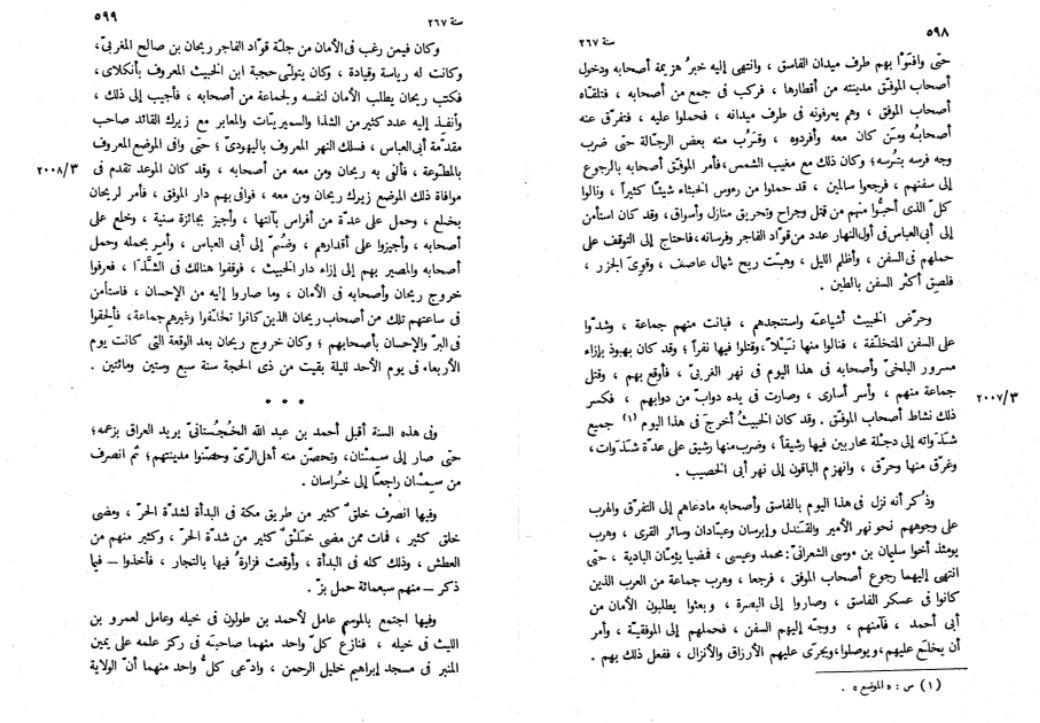 ٥٩٨
سنة ٢٦٧
حتى وافَوْا بهم طرف ميدان الفاسق ، وانتهى إليه خبرُ هزيمة أصحابه ودخول
أصحاب الموفق مدينته من أقطارها ، فركب فى جمع من أصحابه ، فتلقاه
أصحاب الموفق ، وهم يعرفونه فى طرف ميدانه ، فحملوا عليه ، فتفرّق عنه
أصحابُه ومَن كان معه وأفردوه ، وقرُب منه بعض الرجّالة حتى ضرب
وجه فرسه بتُرسه؛ وكان ذلك مع مغيب الشمس،فأمر الموفق أصحابه بالرجوع
إلى سفنهم ، فرجعوا سالمين ، قد حملوا من رءوس الخبثاء شيئًا كثيراً ، ونالوا
كلّ الذى أحبُّوا منهم من قتل وجراح وتحريق منازل وأسواق، وقد كان استأمن
إلى أبى العباس فى أول النهار عدد من قوّاد الفاجر وفرسانه،فاحتاج إلى التوقف على
حملهم فى السفن ، وأظلم الليل ، وهبّت ريح شمال عاصف ، وقوىَ الجزر ،
فلصِق أكثر السفن بالطين .
وحرّض الخبيث أشياعَه واستنجدهم ، فبانت منهم جماعة ، وشدّوا
على السفن المتخلّفة ، فنالوا منها نَيْلاً ،وقتلوا فيها نفراً ؛ وقد كان بهبوذ بإزاء
مسرور البلخىّ وأصحابه فى هذا اليوم فى نهر الغربىّ ، فأوقع بهم ، وقتل
جماعة منهم ، وأسر أسارى ، وصارت فى يده دوابّ من دوابهم ، فكسر
٢٠٠٧/٣
ذلك نشاط أصحاب الموفّق . وقد كان الخبيثُ أخرجَ فى هذا اليوم (١) جميع
شذَواته إلى دجلة محاربين فيها رشيقاً ، وضرب منها رشيق على عدّة شذَوات،
وغرّق منها وحرّق ، وانهزم الباقون إلى نهر أبى الخصيب .
وذُكر أنه نزل فى هذا اليوم بالفاسق وأصحابه مادعاهم إلى التفرّق والهرب
على وجوههم نحو نهر الأمير والقَندل وإبرسان وعبّادان وسائر القرى ، وهرب
يومئذ أخوا سليمان بن موسى الشعرانىّ: محمد وعيسى ، فمضيا يؤمّان البادية ، حتى
انتهى إليهما رجوع أصحاب الموفق ، فرجعا ، وهرب جماعة من العرب الذين
كانوا فى عسكر الفاسق ، وصاروا إلى البصرة ، وبعثوا يطلبون الأمان من
أبى أحمد ، فآمنهم ، ووجّه إليهم السفن ، فحملهم إلى الموفقيّة ، وأمر
أن يخلَع عليهم،ويوصلوا،ويجرى عليهم الأرزاق والأنزال ، ففعل ذلك بهم .
(١) س : « الموضع » .
سنة ٢٦٧
٥٩٩
وكان فيمن رغب فى الأمان من جلّة قوّاد الفاجر ريحان بن صالح المغربىّ،
وكانت له رياسة وقيادة ، وكان يتولّى حجبة ابن الخبيث المعروف بأنكلاى،
فكتب ريحان يطلب الأمان لنفسه ولجماعة من أصحابه ، فأجيب إلى ذلك ،
وأنفِذ إليه عدد كثير من الشذا والسميريّات والمعابر مع زيرك القائد صاحب
مقدّمة أبى العباس ، فسلك النهر المعروف باليهودىّ ؛ حتى وافى الموضع المعروف
بالمطّوعة ، فألفى به ريحان ومن معه من أصحابه ، وقد كان الموعد تقدم فى
٢٠٠٨/٣
موافاة ذلك الموضع زيرك ريحان ومن معه ، فوافى بهم دار الموفق ، فأمر لريحان
بخلع ، وحمل على عدّة من أفراس بآلتها ، وأجيز بجائزة سنية ، وخلع على
أصحابه ، وأجيزوا على أقدارهم ، وضُمّ إلى أبى العباس ، وأمِر بحمله وحمل
أصحابه والمصير بهم إلى إزاء دار الخبيث ، فوقفوا هنالك فى الشَّذا ، فعرفوا
خروج ريحان وأصحابه فى الأمان ، وما صاروا إليه من الإحسان ، فاستأمن
فى ساعتهم تلك من أصحاب ريحان الذين كانوا تخلّفوا وغيرهم جماعة، فألحِقوا
فى البرّ والإحسان بأصحابهم ؛ وكان خروج ريحان بعد الوقعة التى كانت يوم
الأربعاء فى يوم الأحد لليلة بقيت من ذى الحجة سنة سبع وستين ومائتين .
• • •
وفى هذه السنة أقبل أحمد بن عبد الله الخُجُستانىّ يريد العراق بزعمه؛
حتى صار إلى سِمْنان، وتحصّن منه أهل الرّىّ وحصّنوا مدينتهم؛ ثم انصرف
من سِمْنان راجعًا إلى خُراسان .
وفيها انصرف خلقٌ كثير من طريق مكة فى البدأة لشدّة الحرّ ، ومضى
خلق كثير ، فمات ممن مضى خَلْقٌ كثير من شدّة الحرّ ، وكثير منهم من
العطش ، وذلك كله فى البدأة ، وأوقعت فزارةُ فيها بالتجار ، فأخذوا ــ فيما
ذكر ــ منهم سبعمائة حمل بزّ .
وفيها اجتمع بالموسم عامل لأحمد بن طولون فى خيله وعامل لعمرو بن
الليث فى خيله ، فنازع كلّ واحد منهما صاحبَه فى ركز علمه على يمين
المنبر فى مسجد إبراهيم خليل الرحمن ، وادّعى كلُّ واحد منهما أنّ الولاية